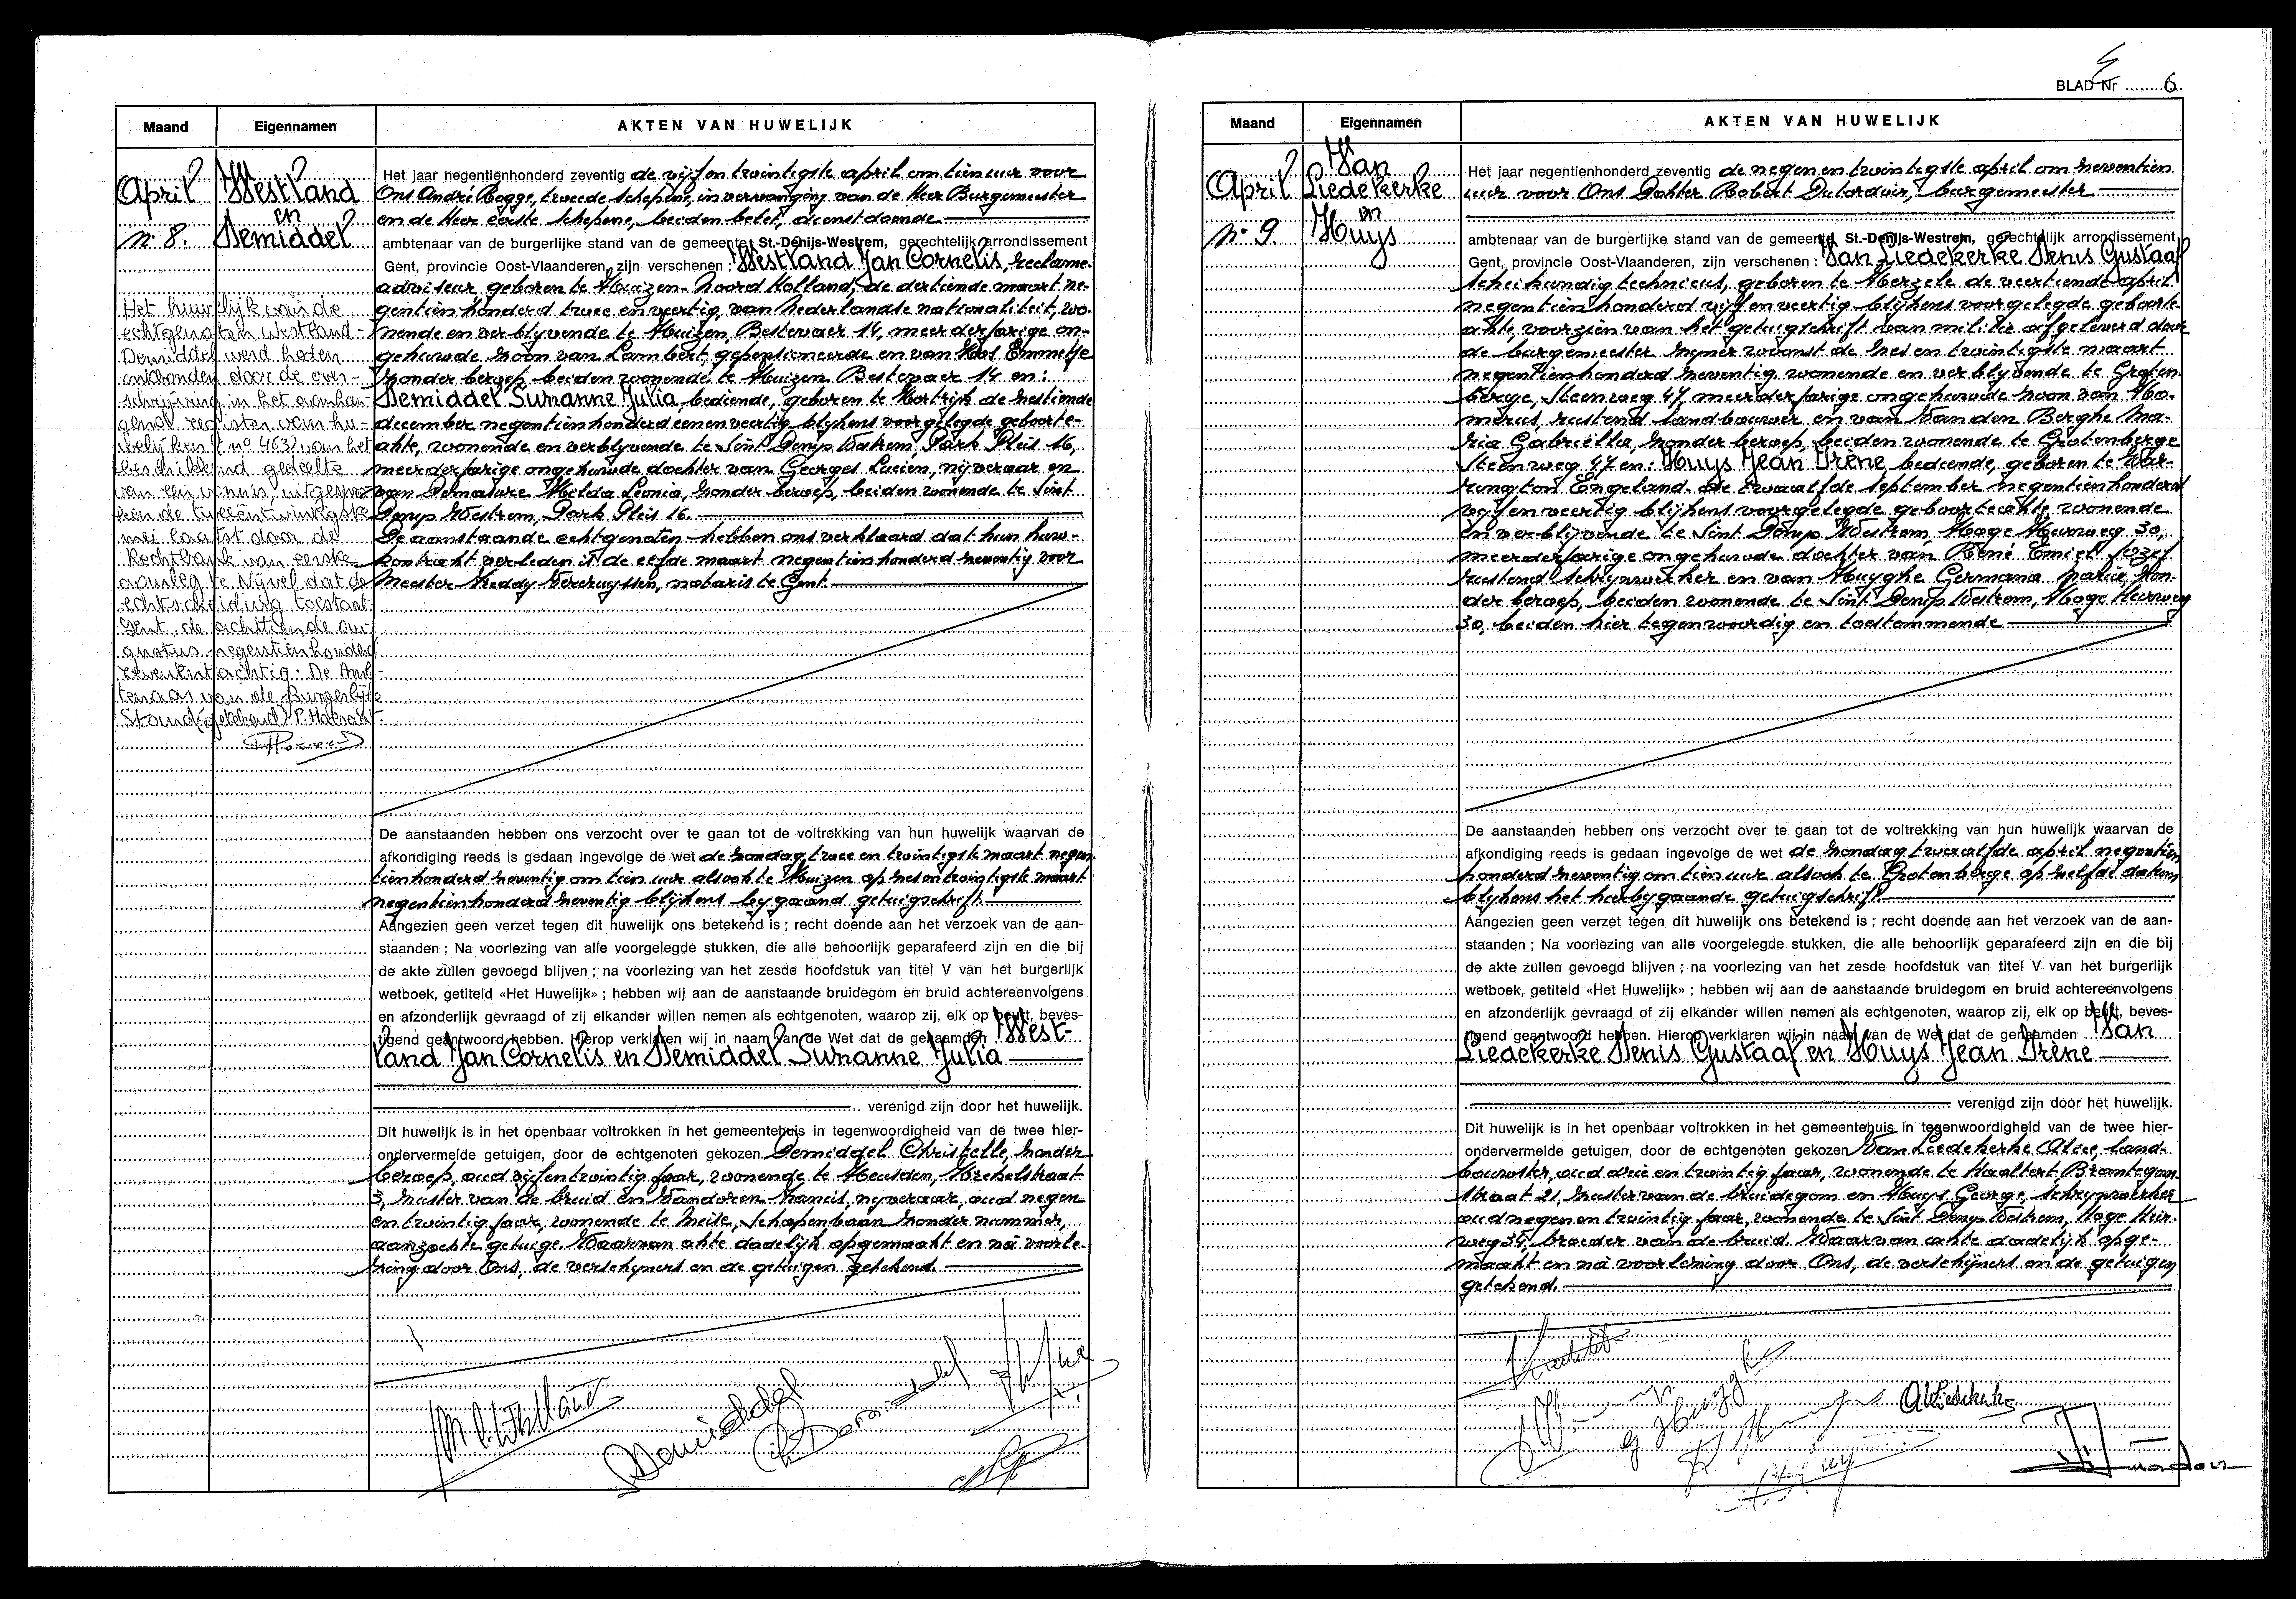 Maand Eigennamen AKTEN VAN HUWELIJK
April Westland
en
n° 8. Demiddel
Het huwelijk van de
echtgenoten Westland-
Demiddel werd heden
ontbonden door de over-
schrijving in het aanhan-
gend register van hu-
welijken (n° 463) van het
beschikkend gedeelte
van een vonnis, uitgespro-
ken de tweeëntwintigste
mei laatst door de
Rechtbank van eerste
aanleg te Nijvel dat de
echtscheiding toestaat
Gent, de achttiende au-
gustus negentienhonderd
zevenentachtig. De Amb-
tenaar van de Burgerlijke
Stand (getekend) P.
Het jaar negentienhonderd zeventig de vijf en twintigste april om tien uur voor
Ons André Bogge, tweede schepene, in vervanging van de Heer Burgemeester
en de Heer eerste schepene, beiden belet, dienstdoende
ambtenaar van de burgerlijke stand van de gemeente St.-Denijs-Westrem, gerechtelijk arrondissement
Gent, provincie Oost-Vlaanderen, zijn verschenen : Westland Jan Cornelis, reclame-
adviseur, geboren te Huizen- Noord Holland, de dertiende maart ne-
gentien honderd twee en veertig, van Nederlandse nationaliteit, wo-
nende en verblijvende te Huizen, Bestevaer 14, meerderjarige on-
gehuwde zoon van Lambert, gepensioneerde en van Emmetje
zonder beroep, beiden wonende te Huizen Bestevaer 14 en:
Demiddel Suzanne Julia, bediende, geboren te Kortrijk de zestiende
december negentienhonderd eenenveertig blijkens voorgelegde geboorte-
akte, wonende en verblijvende te Sint Denijs Westrem, Park Pleis 16,
meerderjarige ongehuwde dochter van Georges Lucien, nijveraar en
van Hilda Leonia, zonder beroep, beiden wonende te Sint
Denijs Westrem, Park Pleis 16.
De aanstaande echtgenoten hebben ons verklaard dat hun huw-
kontrakt verleden is de elfde maart negentienhonderd zeventig voor
Meester Freddy Vercruyssen, notaris te Gent.
De aanstaanden hebben ons verzocht over te gaan tot de voltrekking van hun huwelijk waarvan de
afkondiging reeds is gedaan ingevolge de wet de zondag, twee en twintigste maart negen-
tienhonderd zeventig om tien uur alsook te Huizen op zesentwintigste maart
negentienhonderd zeventig blijkens bijgaand getuigschrift.
Aangezien geen verzet tegen dit huwelijk ons betekend is ; recht doende aan het verzoek van de aan-
staanden ; Na voorlezing van alle voorgelegde stukken, die alle behoorlijk geparafeerd zijn en die bij
de akte zullen gevoegd blijven ; na voorlezing van het zesde hoofdstuk van titel V van het burgerlijk
wetboek, getiteld «Het Huwelijk» ; hebben wij aan de aanstaande bruidegom en bruid achtereenvolgens
en afzonderlijk gevraagd of zij elkander willen nemen als echtgenoten, waarop zij, elk op beurt, beves-
tigend geantwoord hebben. Hierop verklaren wij in naam van de Wet dat de genaamden West-
land Jan Cornelis en Demiddel Suzanne Julia
verenigd zijn door het huwelijk.
Dit huwelijk is in het openbaar voltrokken in het gemeentehuis in tegenwoordigheid van de twee hier-
ondervermelde getuigen, door de echtgenoten gekozen Demiddel Christelle, zonder
beroep, oud vijfentwintig jaar, wonende te Heusden,
3, zuster van de bruid en Vandoren Francis, nijveraar, oud negen
en twintig jaar, wonende te Meise, Schapenbaan zonder nummer,
aanzochte getuige. Waarvan akte dadelijk opgemaakt en na voorle-
zing door Ons, de verschijners en de getuigen getekend.
BLAD Nr 6
Maand Eigennamen AKTEN VAN HUWELIJK
April Van
Liedekerke
en
n° 9. Huys
Het jaar negentienhonderd zeventig de negen en twintigste april om zeventien
uur voor Ons Dokter Robert Dutordoir, burgemeester
ambtenaar van de burgerlijke stand van de gemeente St.-Denijs-Westrem, gerechtelijk arrondissement
Gent, provincie Oost-Vlaanderen, zijn verschenen : Van Liedekerke Denis Gustaaf
scheikundig technicus, geboren te Herzele de veertiende april
negentien honderd vijf en veertig blijkens voorgelegde geboorte-
akte, voorzien van het getuigschrift van militie afgeleverd door
de burgemeester zijner woonst de zes en twintigste maart
negentienhonderd zeventig wonende en verblijvende te Groten-
berge, Steenweg 47 meerderjarige ongehuwde zoon van Ho-
merus, rustend landbouwer en van Van den Berghe Ma-
ria Gabriella, zonder beroep, beiden wonende te Grotenberge
Steenweg 47 en: Huys Jean Irène, bediende, geboren te War-
rington Engeland- de twaalfde september negentienhonderd
vijf en veertig blijkens voorgelegde geboorteakte wonende
en verblijvende te Sint Denijs Westrem Hoge Heirweg 30,
meerderjarige ongehuwde dochter van René Emiel Jozef
rustend schrijnwerker en van Huyghe Germana Maria, zon-
der beroep, beiden wonende te Sint Denijs Westrem, Hoge Heirweg
30, beiden hier tegenwoordig en toestemmende
De aanstaanden hebben ons verzocht over te gaan tot de voltrekking van hun huwelijk waarvan de
afkondiging reeds is gedaan ingevolge de wet de zondag twaalfde april negentien
honderd zeventig om tien uur alsook te Grotenberge op zelfde datum
blijkens het hierbijgaande getuigschrift.
Aangezien geen verzet tegen dit huwelijk ons betekend is ; recht doende aan het verzoek van de aan-
staanden ; Na voorlezing van alle voorgelegde stukken, die alle behoorlijk geparafeerd zijn en die bij
de akte zullen gevoegd blijven ; na voorlezing van het zesde hoofdstuk van titel V van het burgerlijk
wetboek, getiteld «Het Huwelijk» ; hebben wij aan de aanstaande bruidegom en bruid achtereenvolgens
en afzonderlijk gevraagd of zij elkander willen nemen als echtgenoten, waarop zij, elk op beurt, beves-
tigend geantwoord hebben. Hierop verklaren wij in naam van de Wet dat de genaamden Van
Liedekerke Denis Gustaaf en Huys Jean Irène
verenigd zijn door het huwelijk.
Dit huwelijk is in het openbaar voltrokken in het gemeentehuis in tegenwoordigheid van de twee hier-
ondervermelde getuigen, door de echtgenoten gekozen Van Liedekerke Alice, land-
bouwster, oud drie en twintig jaar, wonende te Haaltert
straat 21, zuster van de bruidegom en Huys George, schrijnwerker
oud negen en twintig jaar, wonende te Sint Denijs Westrem, Hoge Heir-
weg 35, broeder van de bruid. Waarvan akte dadelijk opge-
maakt en na voorlezing door Ons, de verschijners en de getuigen
getekend.